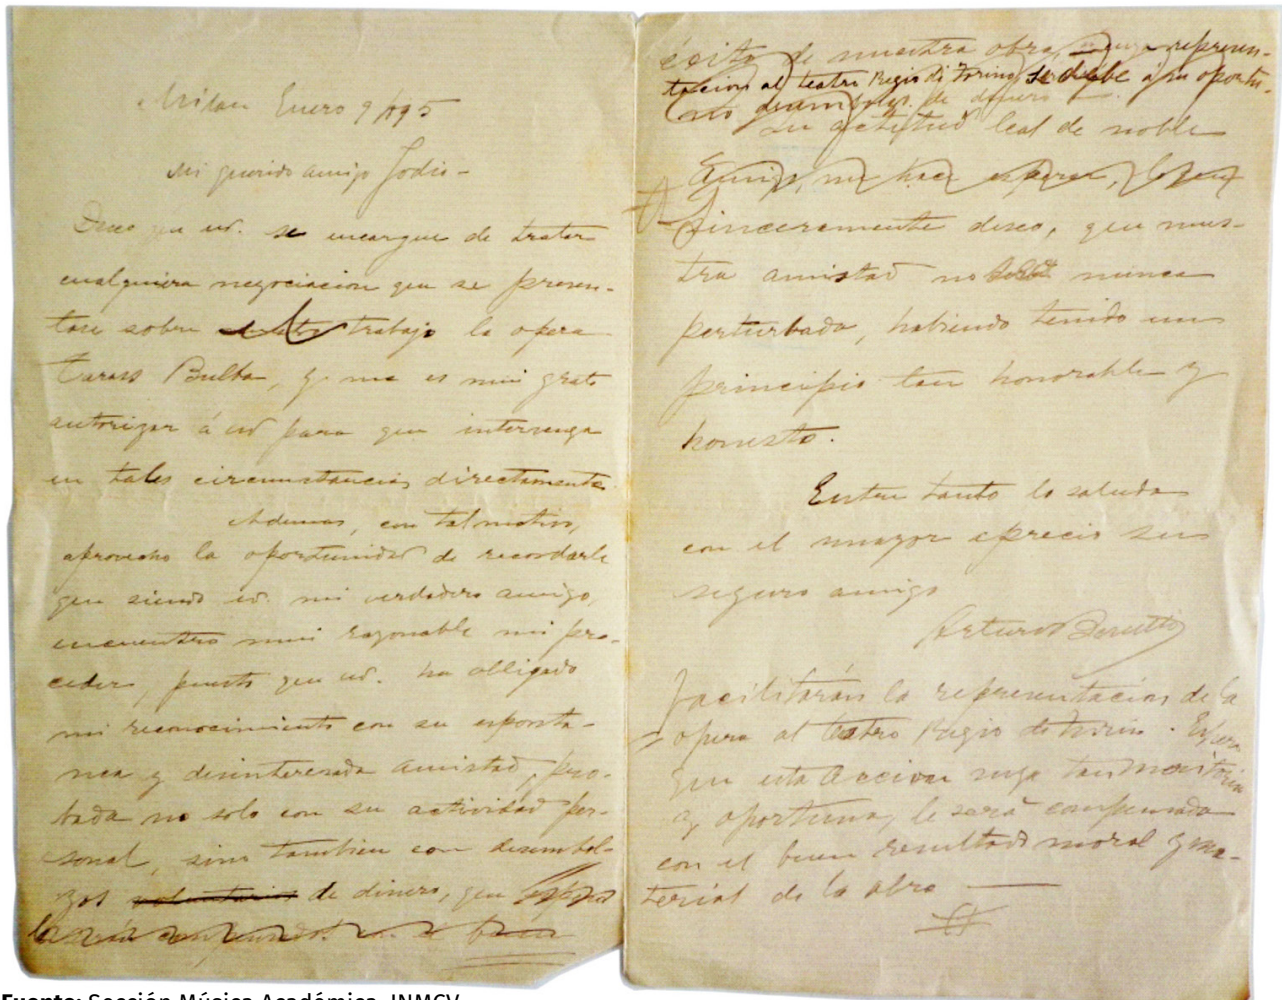 Milan Enero 9/895
Mi querido amigo Jodio-
Deseo que ud. se encargue de tratar
cualquiera negociacion que se presen-
tase sobre trabajo la opera
Tarass Bulba, y me es mui grato
autorizar á ud para que intervenga
en tales circunstancias directamente.
Ademas, con tal motivo,
aprovecho la oportunidad de recordarle
que siendo ud. mi verdadero amigo,
encuentro mui razonable mi pro-
ceder, puesto que ud. ha obligado
mi reconocimiento con su esponta-
nea y desinteresada amistad, pro-
bada no solo con su actividad per-
sonal, sino tambien con desembol-
zos voluntarios de dinero, que
le serán compensados en el buen
éxito de nuestra obra, cuya represen-
tacion al teatro Regio di Torino se debe á su oportu-
no de dinero —
Su actitud leal de noble
Amigo, me hace esperar,
sinceramente deseo, que nues-
tra amistad no será nunca
perturbada, habiendo tenido un
principio tan honorable y
honesto.
Entre tanto lo saluda
con el mayor aprecio su
seguro amigo
Arturo Berutti
facilitarán la representacion de la
opera al teatro Regio de Torino.
que esta accion suya tan meritoria
y oportuna, le será compensada
con el buen resultado moral y ma-
terial de la obra —
Fuente: Sección Música Académica, INMCV